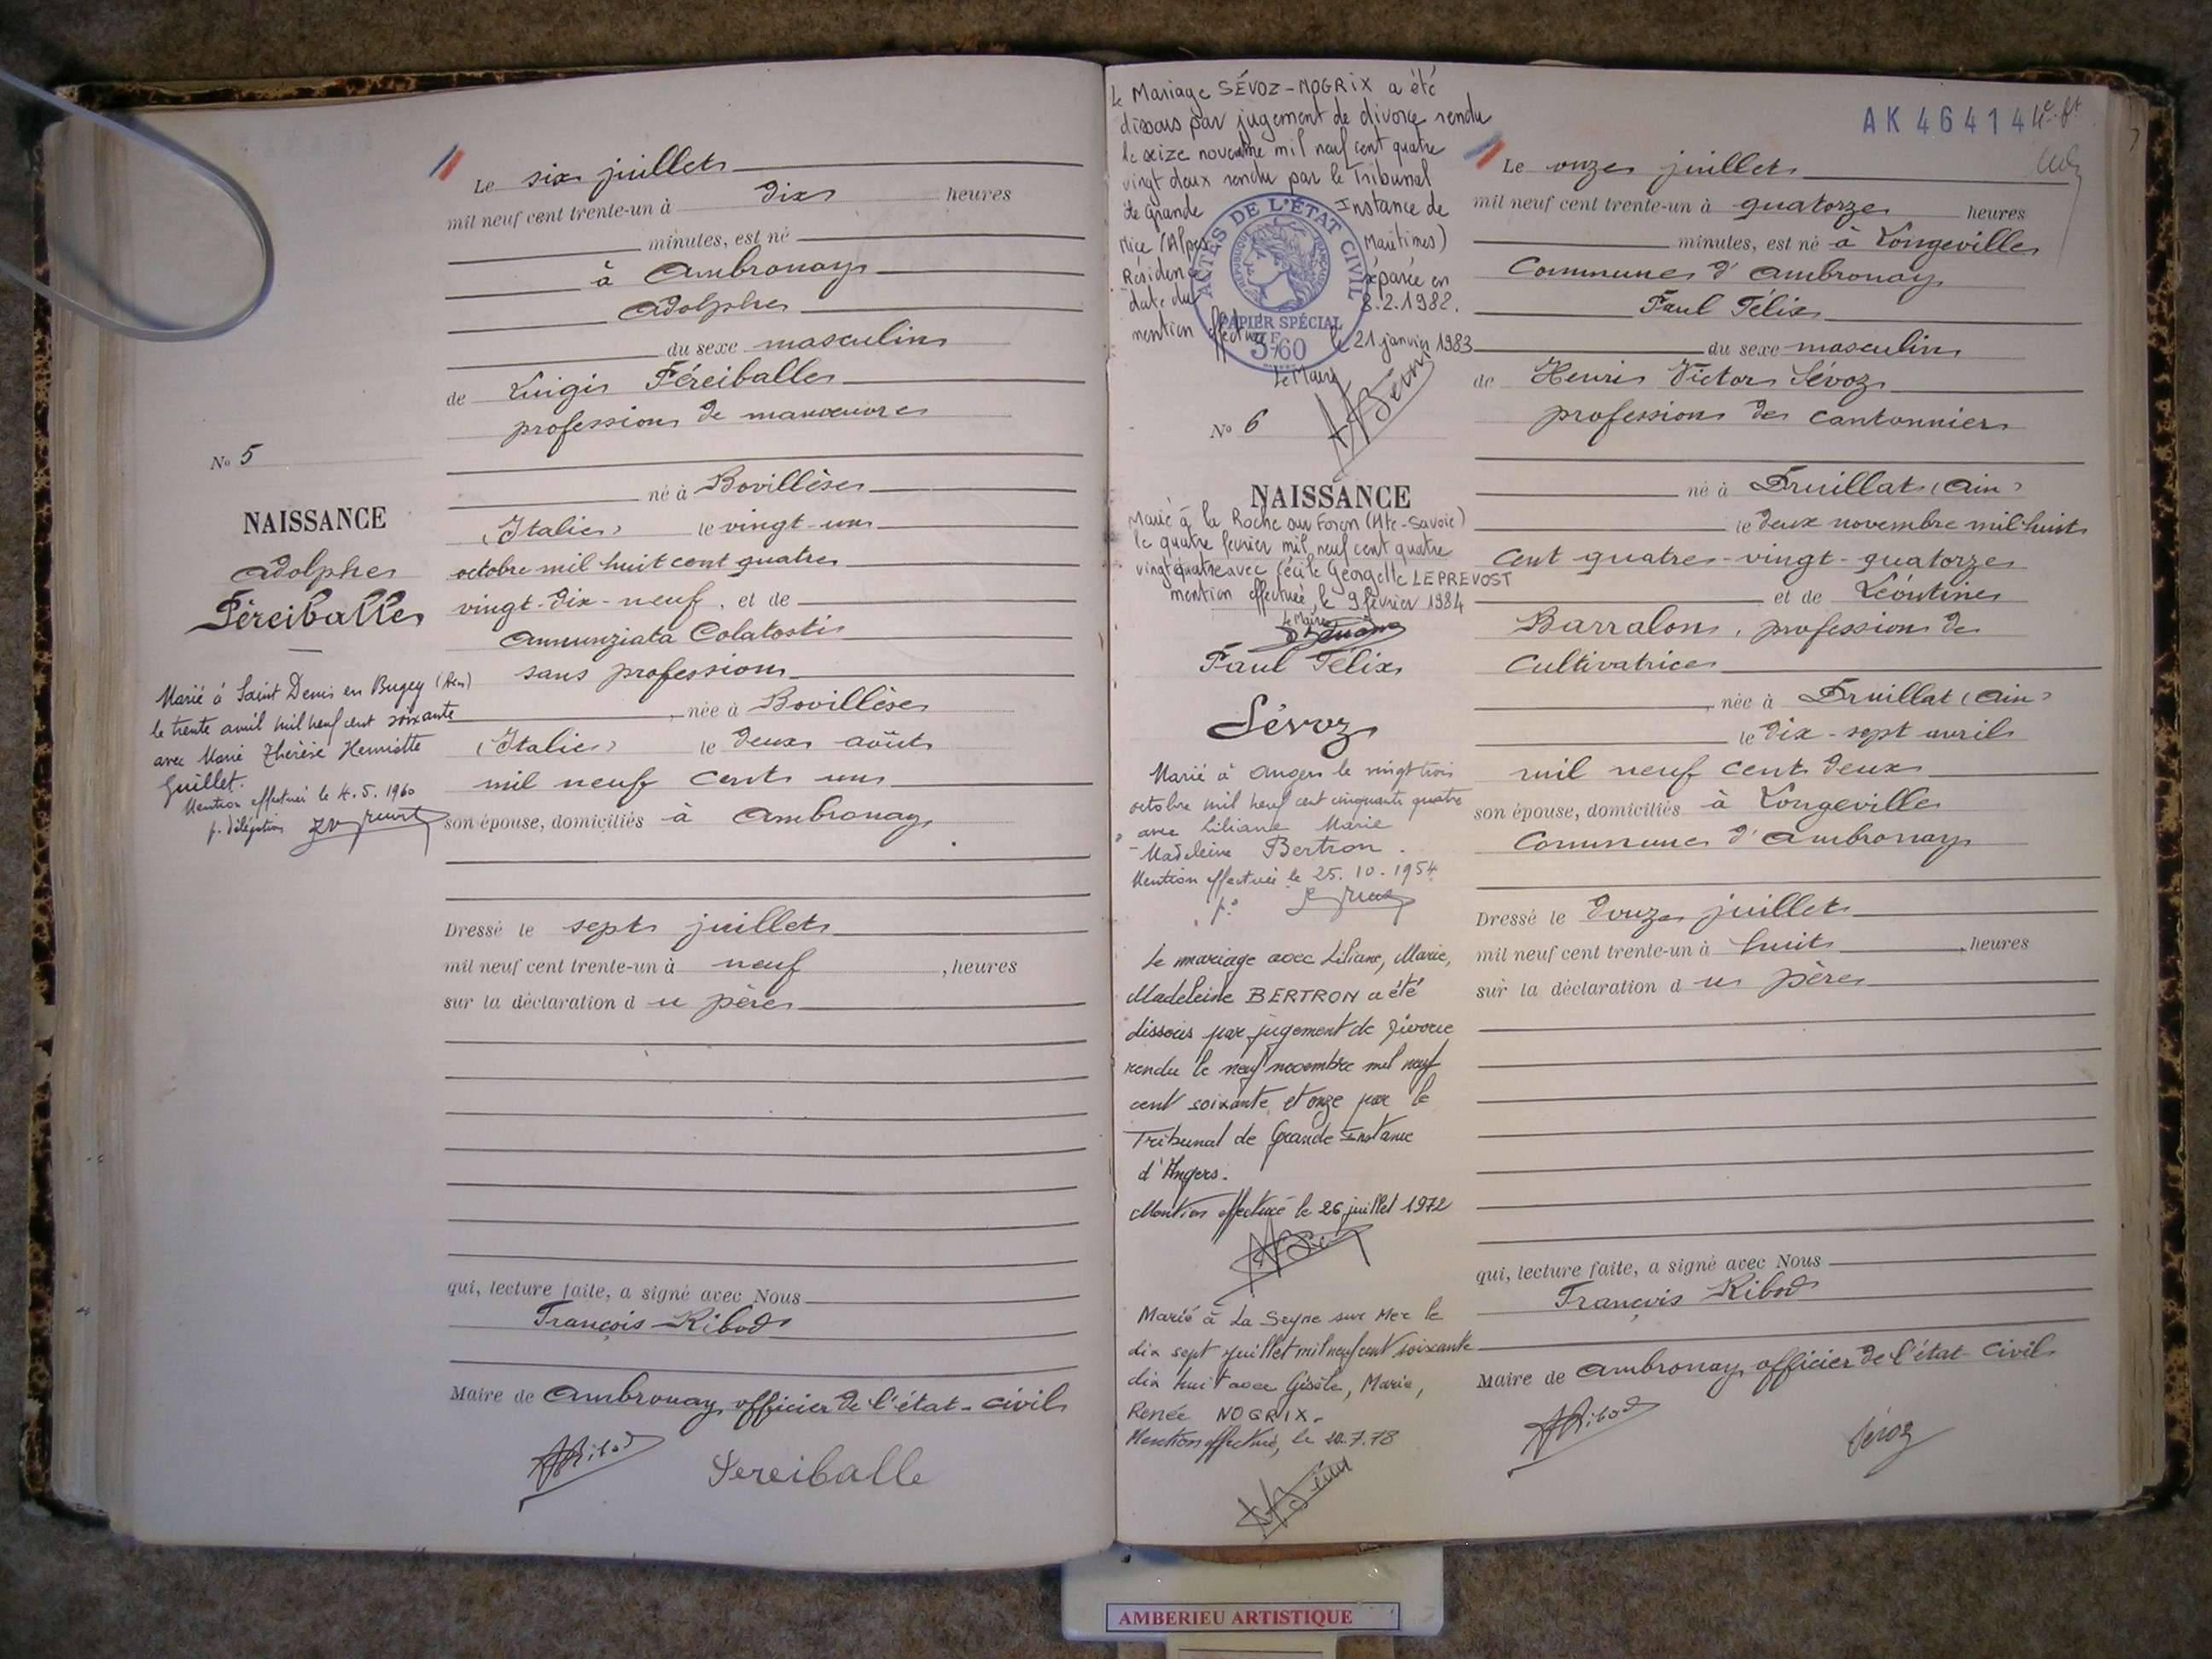 Le six juillet
mil neuf cent trente-un à dix heures
minutes, est né
à Ambronay
Adolphe
du sexe masculin
de Luigi Féreiballe
profession de manœuvre
né à Bovillèse
(Italie) le vingt-un
octobre mil huit cent quatre
vingt-dix-neuf, et de
Annunziata Colatosti
sans profession
, née à Bovillèse
(Italie) le deux août
mil neuf cent un
son épouse, domiciliés à Ambronay
Dressé le sept juillet
mil neuf cent trente-un à neuf , heures
sur la déclaration du père
qui, lecture faite, a signé avec Nous
François Ribod
Maire de Ambronay, officier de l'état-civil
ARibod
Fereiballe
No 5
NAISSANCE
Adolphe
Féreiballe
Marié à Saint Denis en Bugey (Ain)
le trente avril mil neuf cent soixante
avec Marie Thérèse Henriette
Guillet.
Mention effectuée le 4.5.1960
p. délégation
Le Mariage SÉVOZ-NOGRIX a été
dissous par jugement de divorce rendu
le seize novembre mil neuf cent quatre
vingt deux rendu par le Tribunal
de Grande Instance de
Nice (Alpes Maritimes)
Résidence séparée en
date du 8.2.1982.
mention effectuée le 21 janvier 1983
Le Maire
ACTES DE L'ÉTAT CIVIL
RÉPUBLIQUE FRANÇAISE
PAPIER SPÉCIAL
3F60
No 6
NAISSANCE
Marié à la Roche sur Foron (Hte-Savoie)
le quatre février mil neuf cent quatre
vingt quatre avec Cécile Georgette LEPREVOST
mention effectuée, le 9 février 1984
Le Maire
Paul Félix
Sévoz
Marié à Angers le vingt trois
octobre mil neuf cent cinquante quatre
avec Liliane Marie
Madeleine Bertron.
Mention effectuée le 25.10.1954
Le mariage avec Liliane, Marie,
Madeleine BERTRON a été
dissous par jugement de divorce
rendu le neuf novembre mil neuf
cent soixante et onze par le
Tribunal de Grande Instance
d'Angers.
Mention effectuée le 26 juillet 1972
Marié à La Seyne sur Mer le
dix sept juillet mil neuf cent soixante
dix huit avec Gisèle, Marie,
Renée NOGRIX.
Mention effectuée, le 20.7.78
AK 46414
Le onze juillet
mil neuf cent trente-un à quatorze heures
minutes, est né à Longeville
Commune d'Ambronay
Paul Félix
du sexe masculin
de Henri Victor Sévoz
profession de cantonnier
né à Druillat (Ain)
le deux novembre mil huit
cent quatre-vingt-quatorze
et de Léontine
Barralon, profession de
Cultivatrice
, née à Druillat (Ain)
le dix-sept avril
mil neuf cent deux
son épouse, domiciliés à Longeville
Commune d'Ambronay
Dressé le douze juillet
mil neuf cent trente-un à huit , heures
sur la déclaration du père
qui, lecture faite, a signé avec Nous
François Ribod
Maire de Ambronay, officier de l'état-civil
ARibod
Sévoz
AMBERIEU ARTISTIQUE